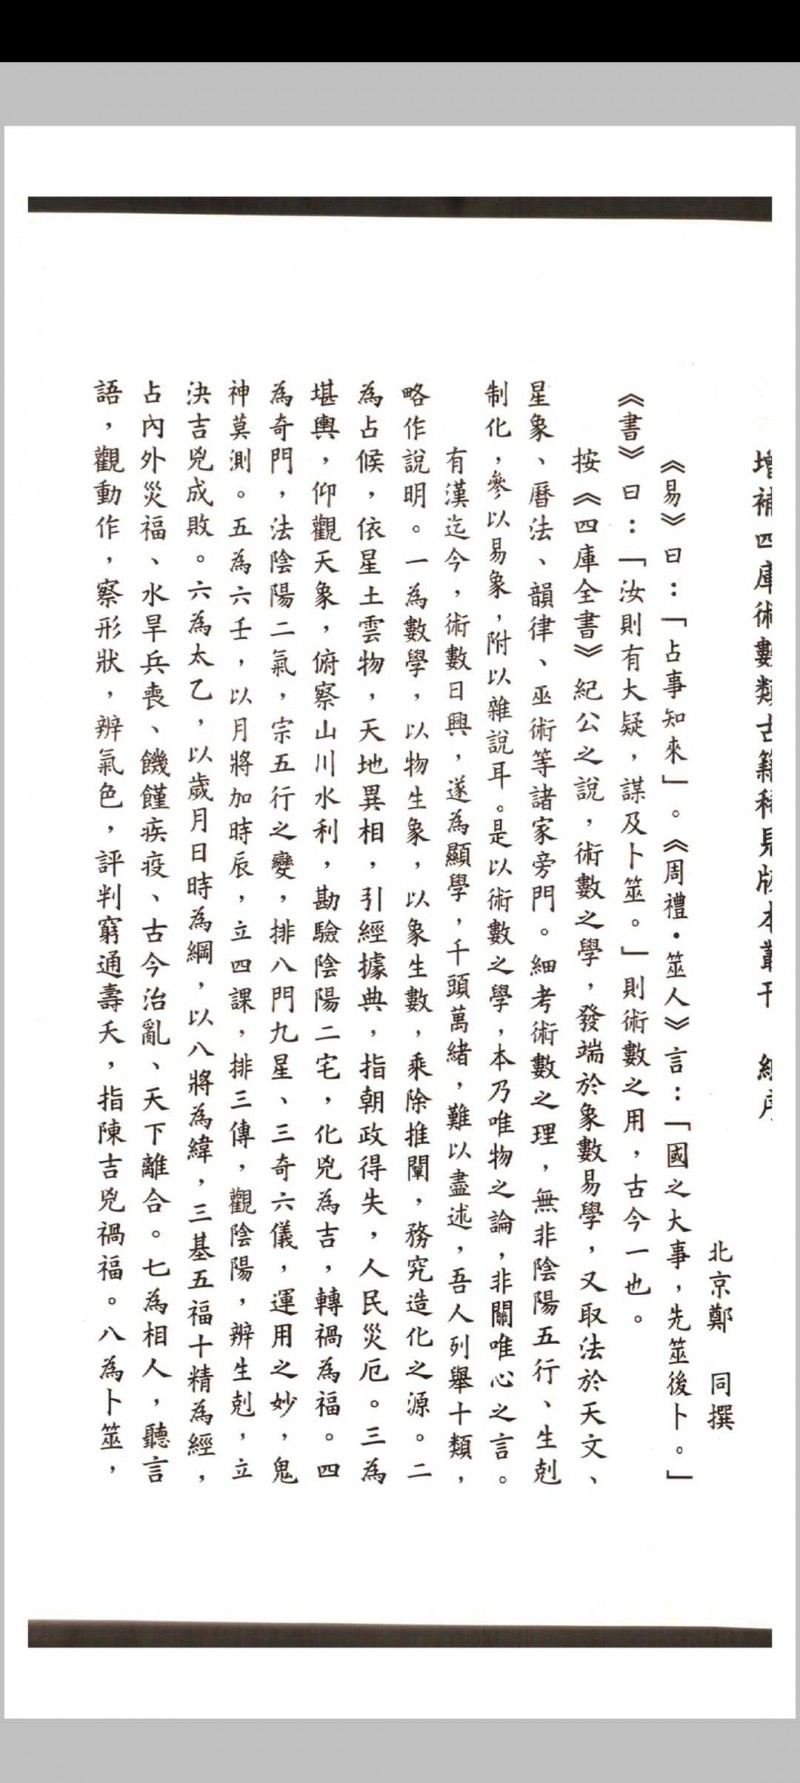 增補四庫術數類古籍稀見版本叢刊　總序
北京鄭　同撰
《易》曰：「占事知來」。《周禮·筮人》言：「國之大事，先筮後卜。」
《書》曰：「汝則有大疑，謀及卜筮。」則術數之用，古今一也。
按《四庫全書》紀公之說，術數之學，發端於象數易學，又取法於天文、
星象、曆法、韻律、巫術等諸家旁門。細考術數之理，無非陰陽五行、生剋
制化，參以易象，附以雜說耳。是以術數之學，本乃唯物之論，非關唯心之言。
有漢迄今，術數日興，遂為顯學，千頭萬緒，難以盡述，吾人列舉十類，
略作說明。一為數學，以物生象，以象生數，乘除推闡，務究造化之源。二
為占候，依星土雲物，天地異相，引經據典，指朝政得失，人民災厄。三為
堪輿，仰觀天象，俯察山川水利，勘驗陰陽二宅，化兇為吉，轉禍為福。四
為奇門，法陰陽二氣，宗五行之變，排八門九星、三奇六儀，運用之妙，鬼
神莫測。五為六壬，以月將加時辰，立四課，排三傳，觀陰陽，辨生剋，立
決吉兇成敗。六為太乙，以歲月日時為綱，以八將為緯，三基五福十精為經，
占內外災福、水旱兵喪、饑饉疾疫、古今治亂、天下離合。七為相人，聽言
語，觀動作，察形狀，辨氣色，評判窮通壽夭，指陳吉兇禍福。八為卜筮，